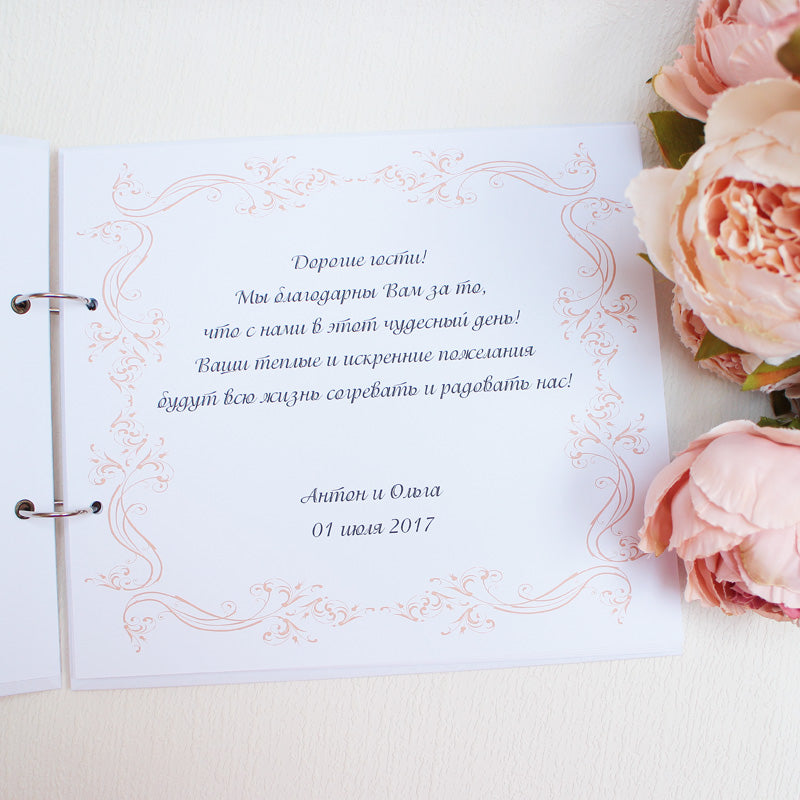 Дорогие гости!
Мы благодарны Вам за то,
что с нами в этот чудесный день!
Ваши теплые и искренние пожелания
будут всю жизнь согревать и радовать нас!
Антон и Ольга
01 июля 2017